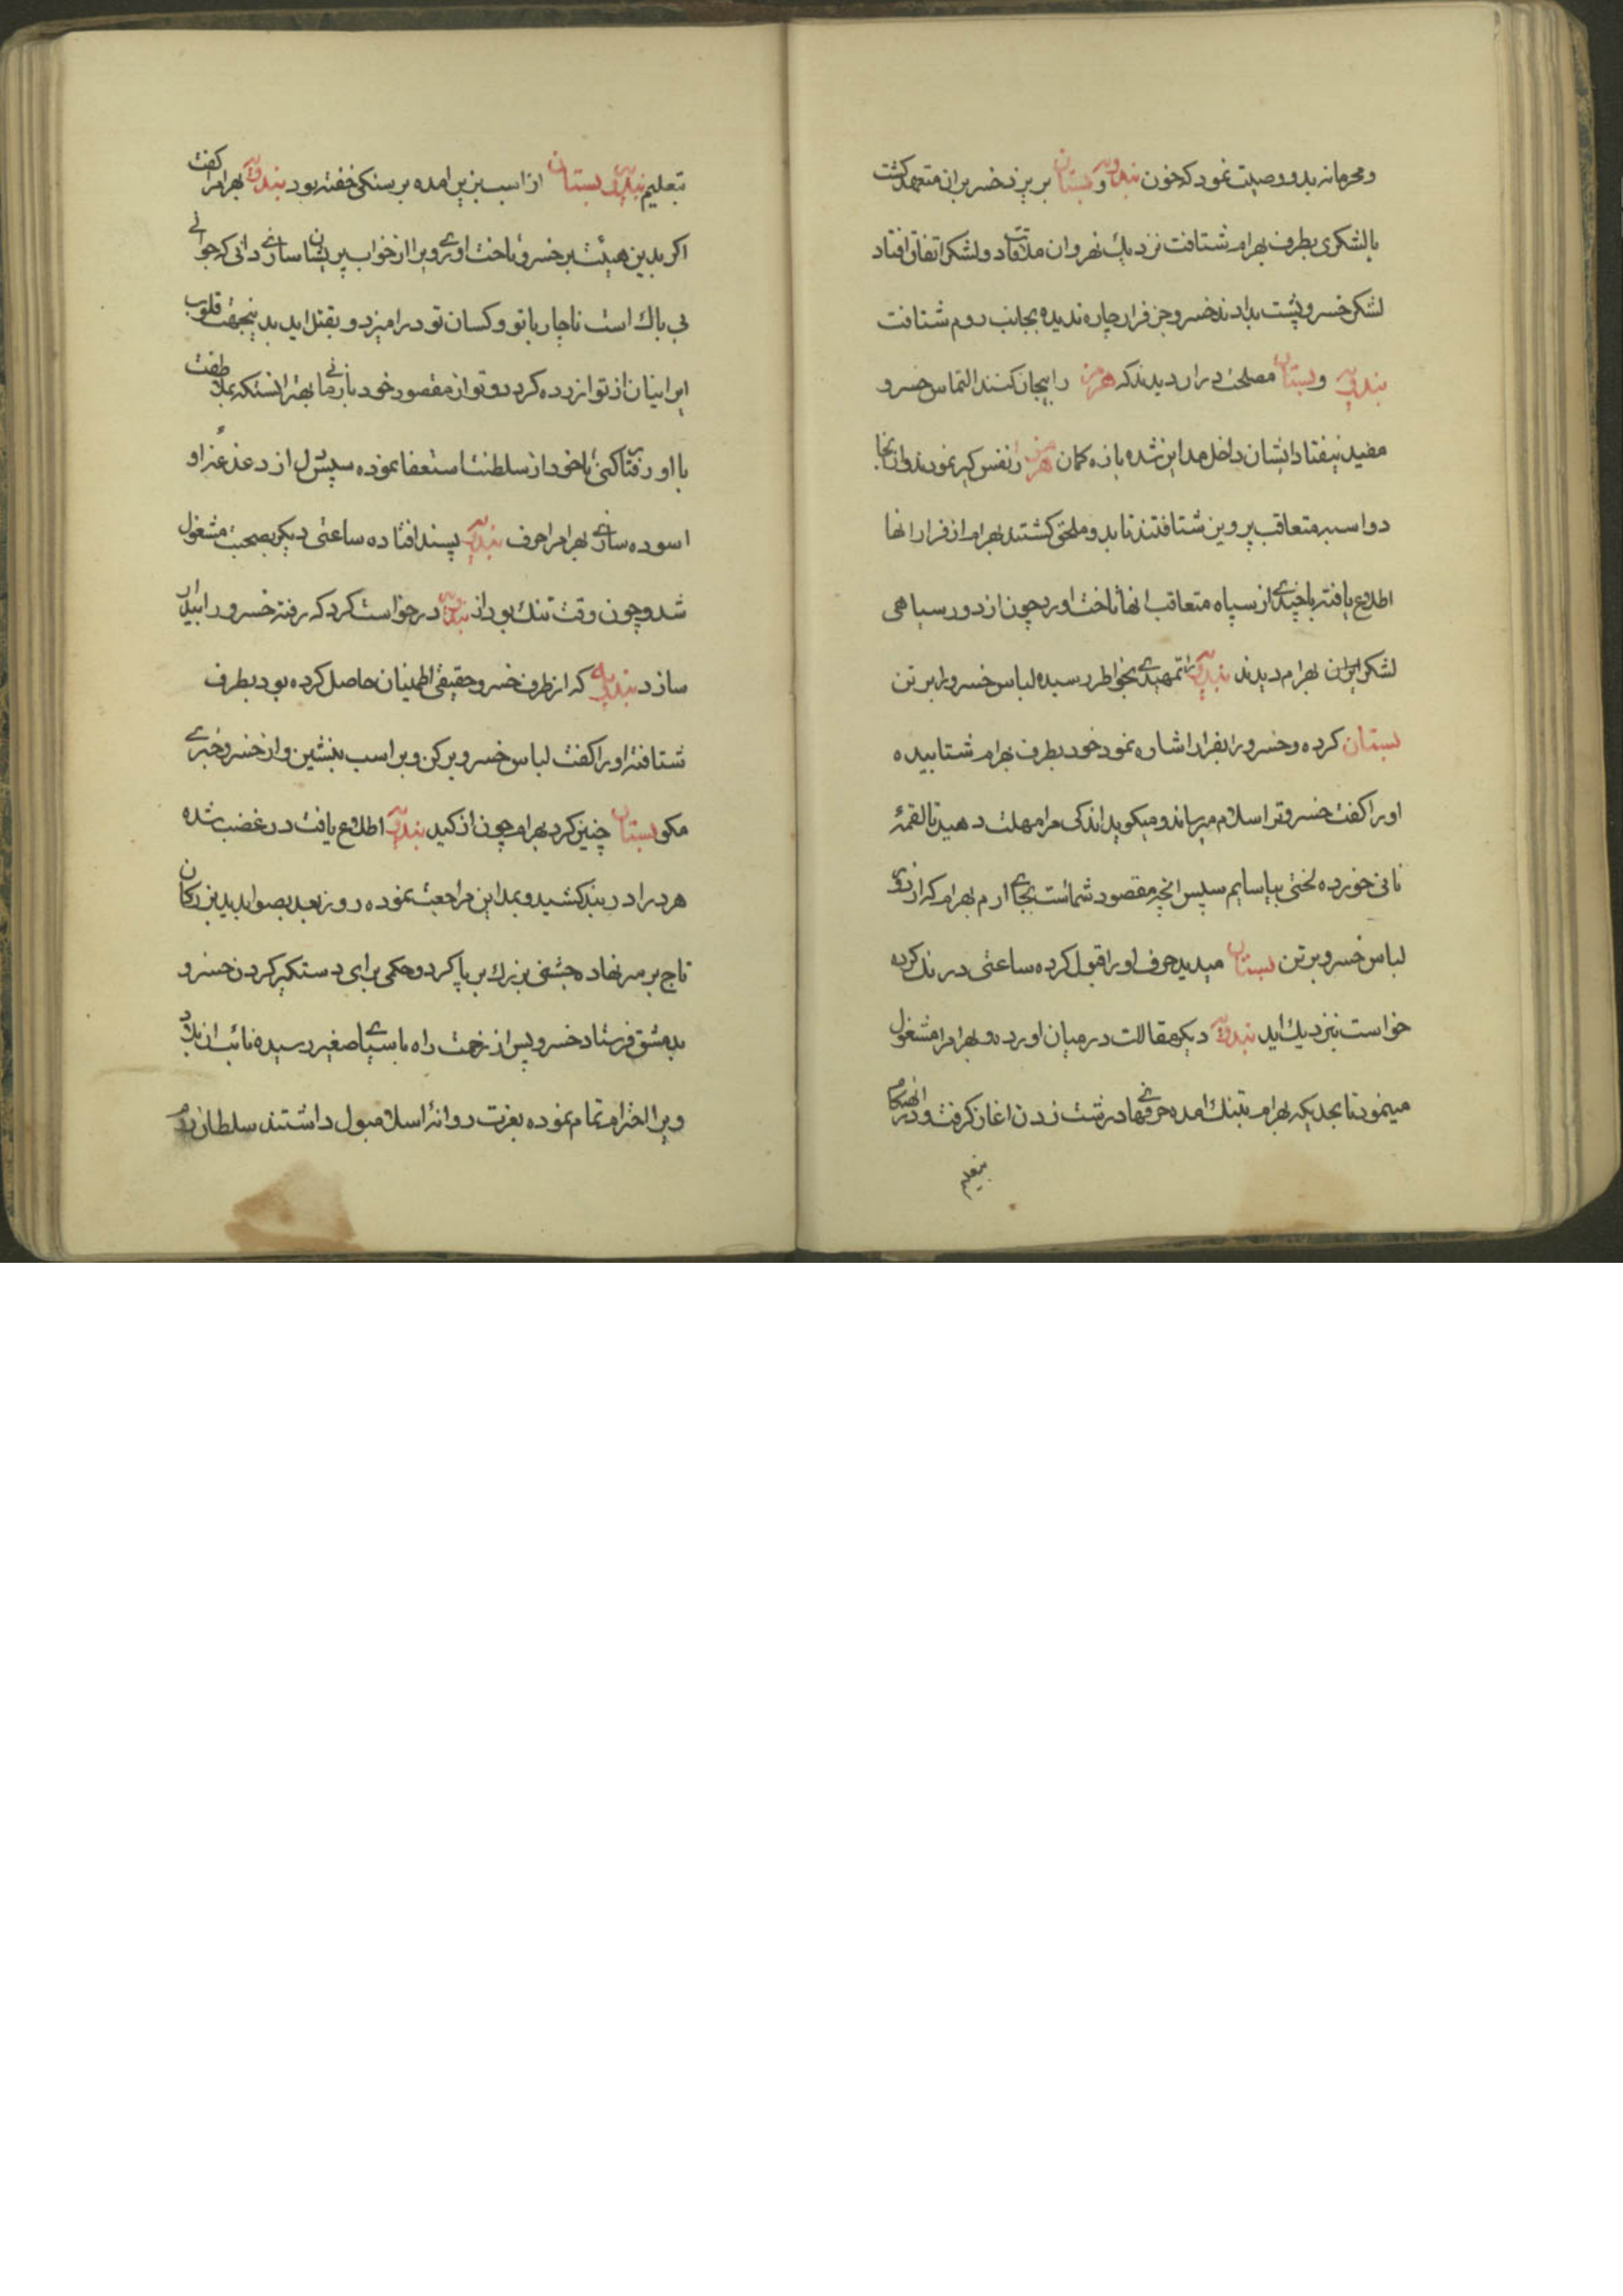 و محرمانه بدو وصیت نمود که خون بندویه و بستان بریزد خسر بران متعهد کشت
بالشکری بطرف بهرام شتافت نزدیك نهروان ملاقات دو لشکر اتفاق افتاد
لشکر خسرو پشت بدادند خسرو جز فرار چاره ندیده بجانب روم شتافت
بندویه و بستان مصلحت دران دیدند که هرمز را بیجان کنند التماس خسرو
مفید نیفتاد ایشان داخل مداین شده با زه کمان هرمز را نفس کیر نمودند و از انجا
دو اسبه متعاقب پرویز شتافتند تا بدو ملحق کشتند بهرام از فرار انها
اطلاع یافته با چندی از سپاه متعاقب انها تاخت اورد چون از دور سیاهی
لشکر ایران بهرام دیدند بندویه را تمهیدی بخواطر رسیده لباس خسرو را بر تن
بستان کرده و خسرو را بفرار اشاره نمود خود بطرف بهرام شتابیده
او را کفت خسرو ترا سلام میرساند و میکوید اندکی مرا مهلت دهید تا لقمهٔ
نانی خورده لختی بیاسایم سپس انچه مقصود شماست بجای ارم بهرام که از دور
لباس خسرو بر تن بستان میدید حرف او را قبول کرده ساعتی درنك کرده
خواست نزدیك اید بندویه دیکر مقالات در میان اورده و بهرام را مشغول
مینمود تا بحدیکه بهرام بتنك امده حرفهای درشت زدن اغاز کرفت و در انهنکام
بتعلیم
بتعلیم بندویه بستان از اسب بزیر امده بر سنکی خفته بود بندویه بهرام را کفت
اکر بدین هیئت بر خسرو تاخت اوری و ویرا از خواب پریشان سازی دانی که جوانی
بی باك است ناچار با تو و کسان تو در امیزد و بقتل اید بدینجهت قلوب
ایرانیان از تو ازرده کردد و تو از مقصود خود بازمانی بهتر انستکه بملاطفت
با او رفتار کنی تا خود از سلطنت استعفا نموده سپس دل از دغدغهٔ او
اسوده سازی بهرام را حرف بندویه پسند افتاده ساعتی دیکر بصحبت مشغول
شد و چون وقت تنك بود از بندویه درخواست کرد که رفته خسرو را بیدار
سازد بندویه که از طرف خسرو حقیقی اطمینان حاصل کرده بود بطرف
شتافته او را کفت لباس خسرو برکن و بر اسب بنشین و از خسرو خبری
مکو بستان چنین کرد بهرام چون از کید بندویه اطلاع یافت در غضب شده
هر دو را در بند کشید و بمداین مراجعت نموده روز بعد بصوابدید بزرکان
تاج بر سر نهاده جشنی بزرك بر پا کرد و حکمی برای دستکیر کردن خسرو
بدمشق فرستاد خسرو پس از زحمت راه با سپاه صغیر رسیده نائب ان بلاد
ویرا احترام تمام نموده بعزت روانهٔ اسلامبول داشتند سلطان روم